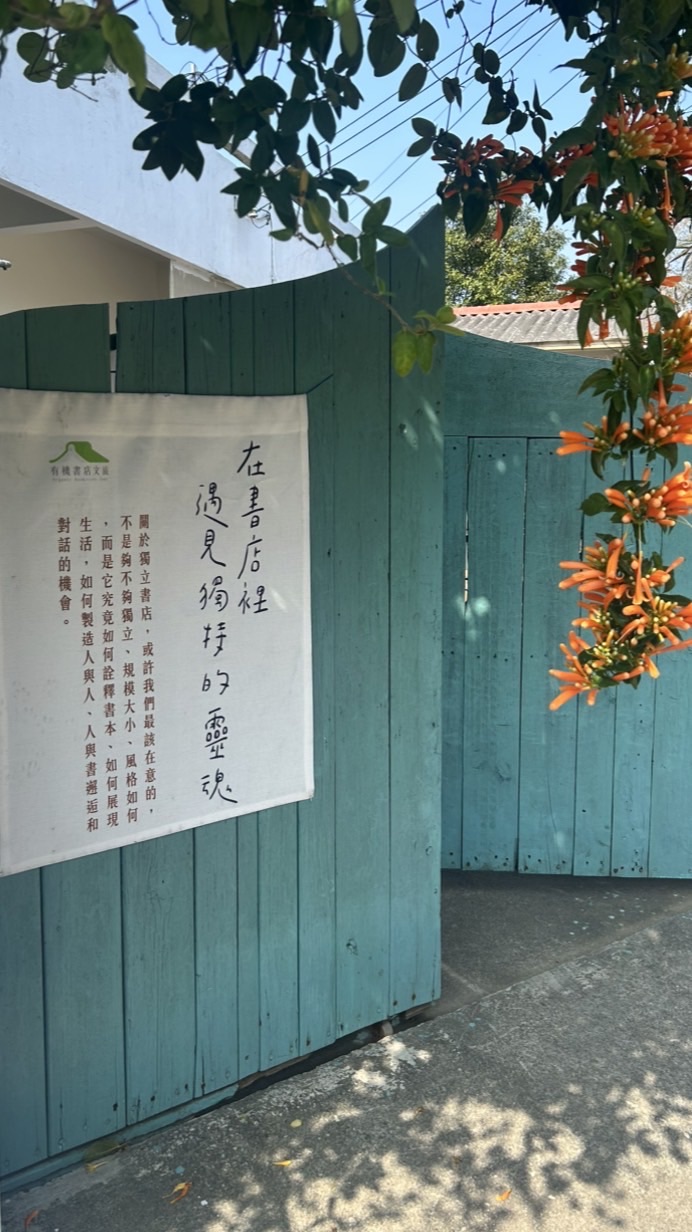 在書店裡
遇見獨特的靈魂
關於獨立書店，或許我們最該在意的，
不是夠不夠獨立、規模大小、風格如何
，而是它究竟如何詮釋書本、如何展現
生活，如何製造人與人、人與書邂逅和
對話的機會。
有機書店文庫